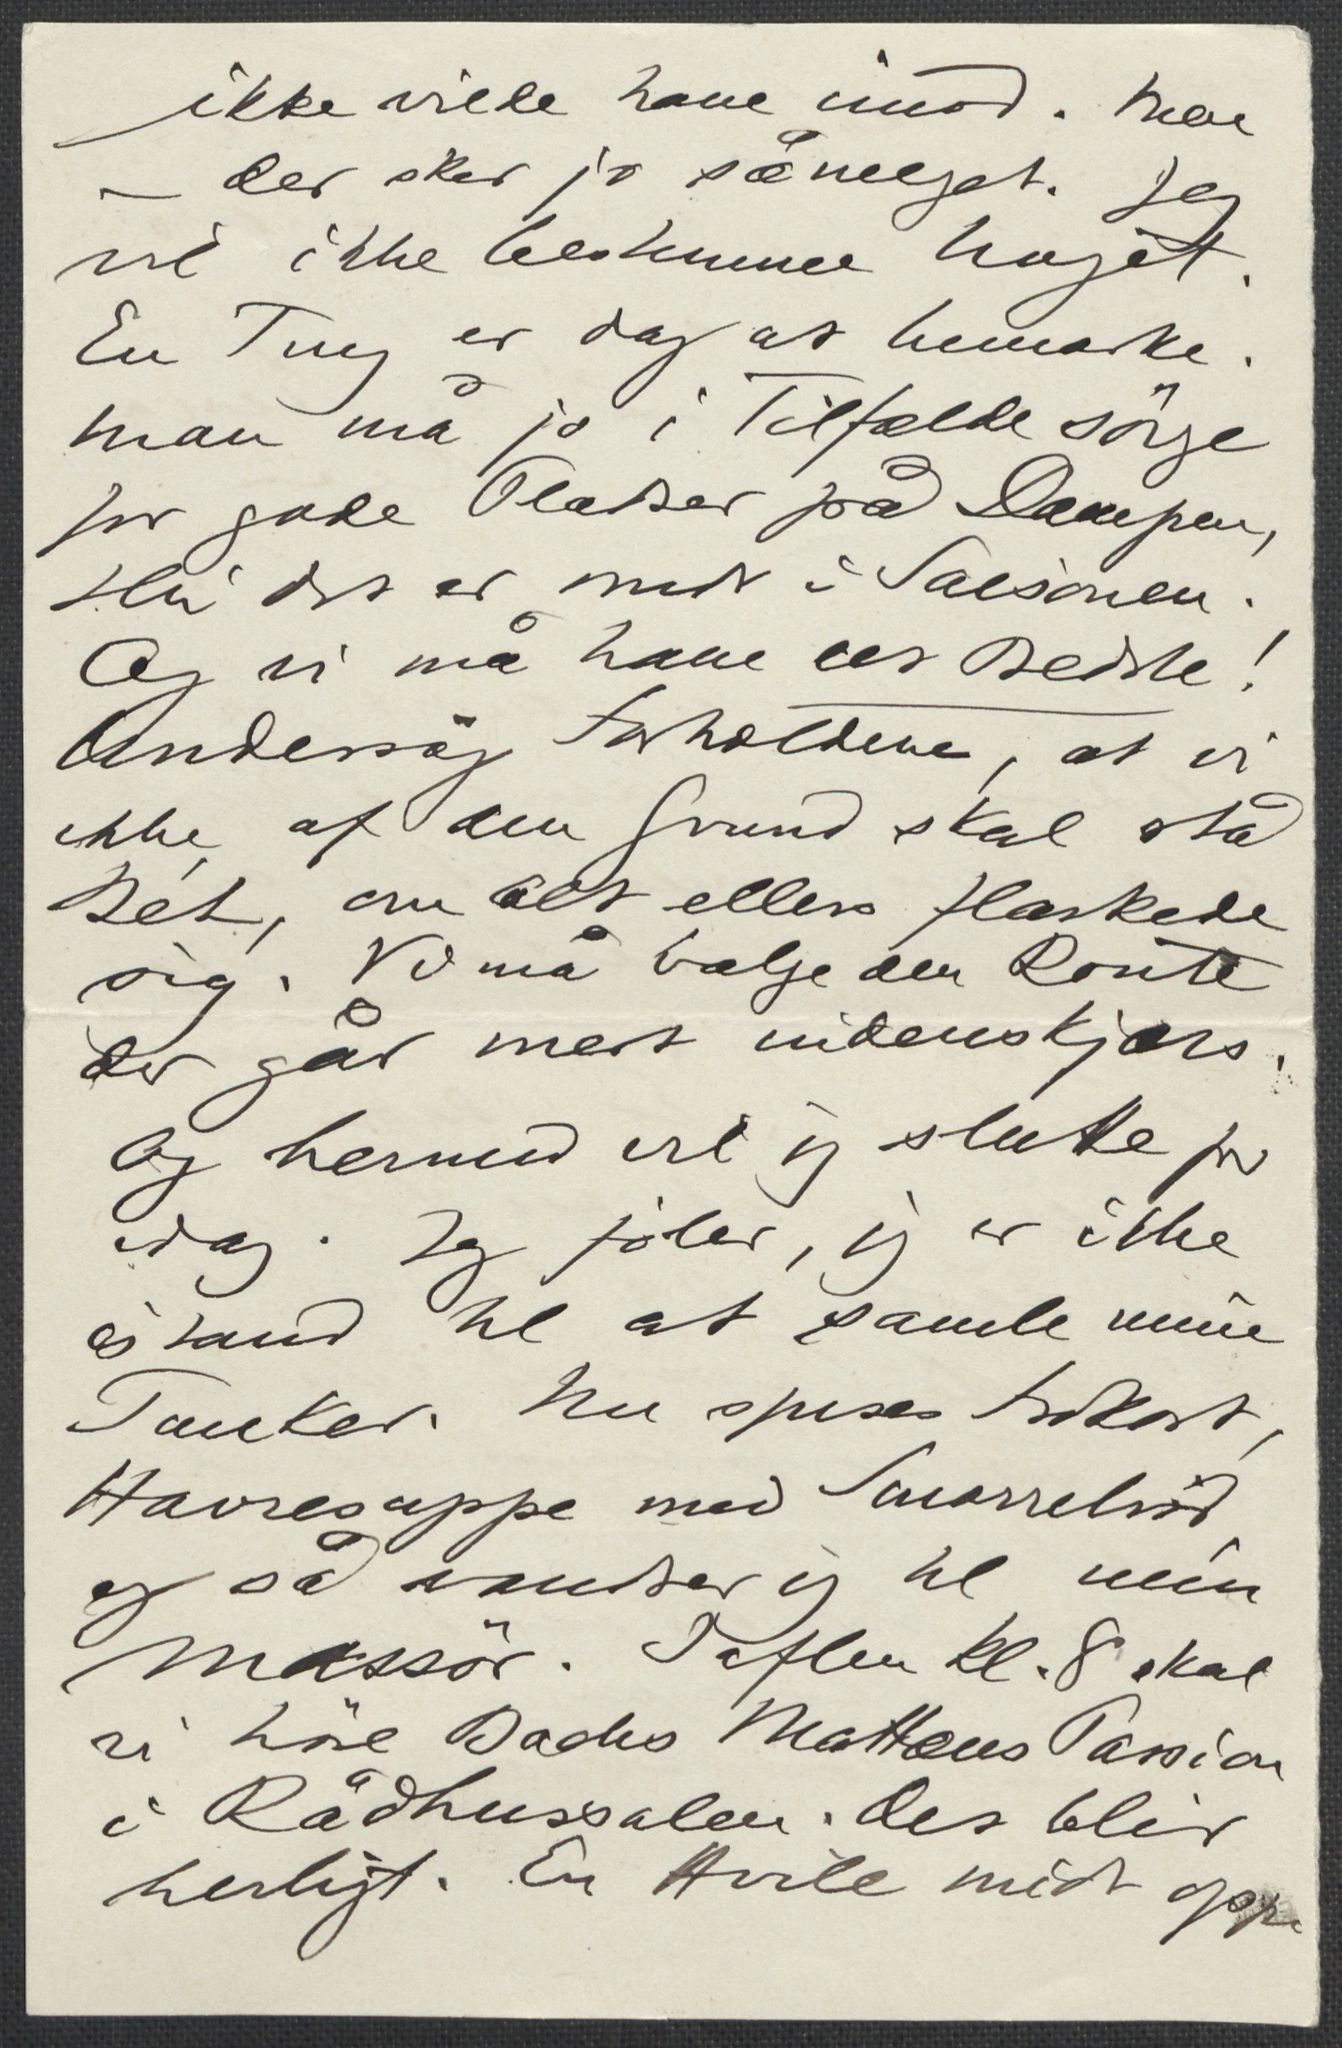 ikke vilde have imod. Men
– der sker jo så meget. Jeg
vil ikke bestemme noget.
En Ting er dog at bemærke.
Man må jo i Tilfælde sörge
for gode Pladser på Dampen,
thi det er midt i Saisonen.
Og vi må have det Bedste!
Undersög Forholdene, at vi
ikke af den Grund skal stå
Bét, om alt ellers flaskede
sig. Vi må vælge den Route
der går mest indenskjærs.
Og hermed vil jeg slutte for
idag. Jeg föler, jeg er ikke
istand til at samle mine
Tanker. Nu spises frokost,
Havresuppe med Smørrebröd
og så vandrer jeg til min
Massör. I aften kl. 8 skal
vi höre Bachs Matthæus Passion
i Rådhussalen. Det blir
herligt. En Hvile midt oppe